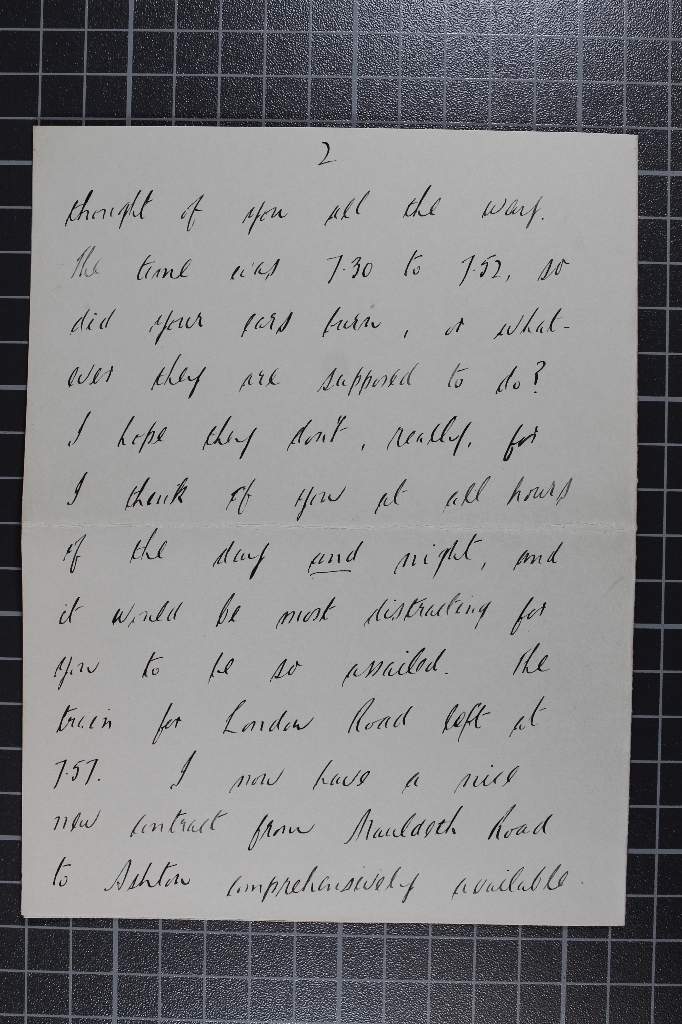 2
thought of you all the way.
The time was 7.30 to 7.52, so
did your ears burn, or what-
ever they are supposed to do?
I hope they don't, really, for
I think of you at all hours
of the day and night, and
it would be most distracting for
you to be so assailed. The
train for London Road left at
7.57. I now have a nice
new contract from Mauldeth Road
to Ashton comprehensively available